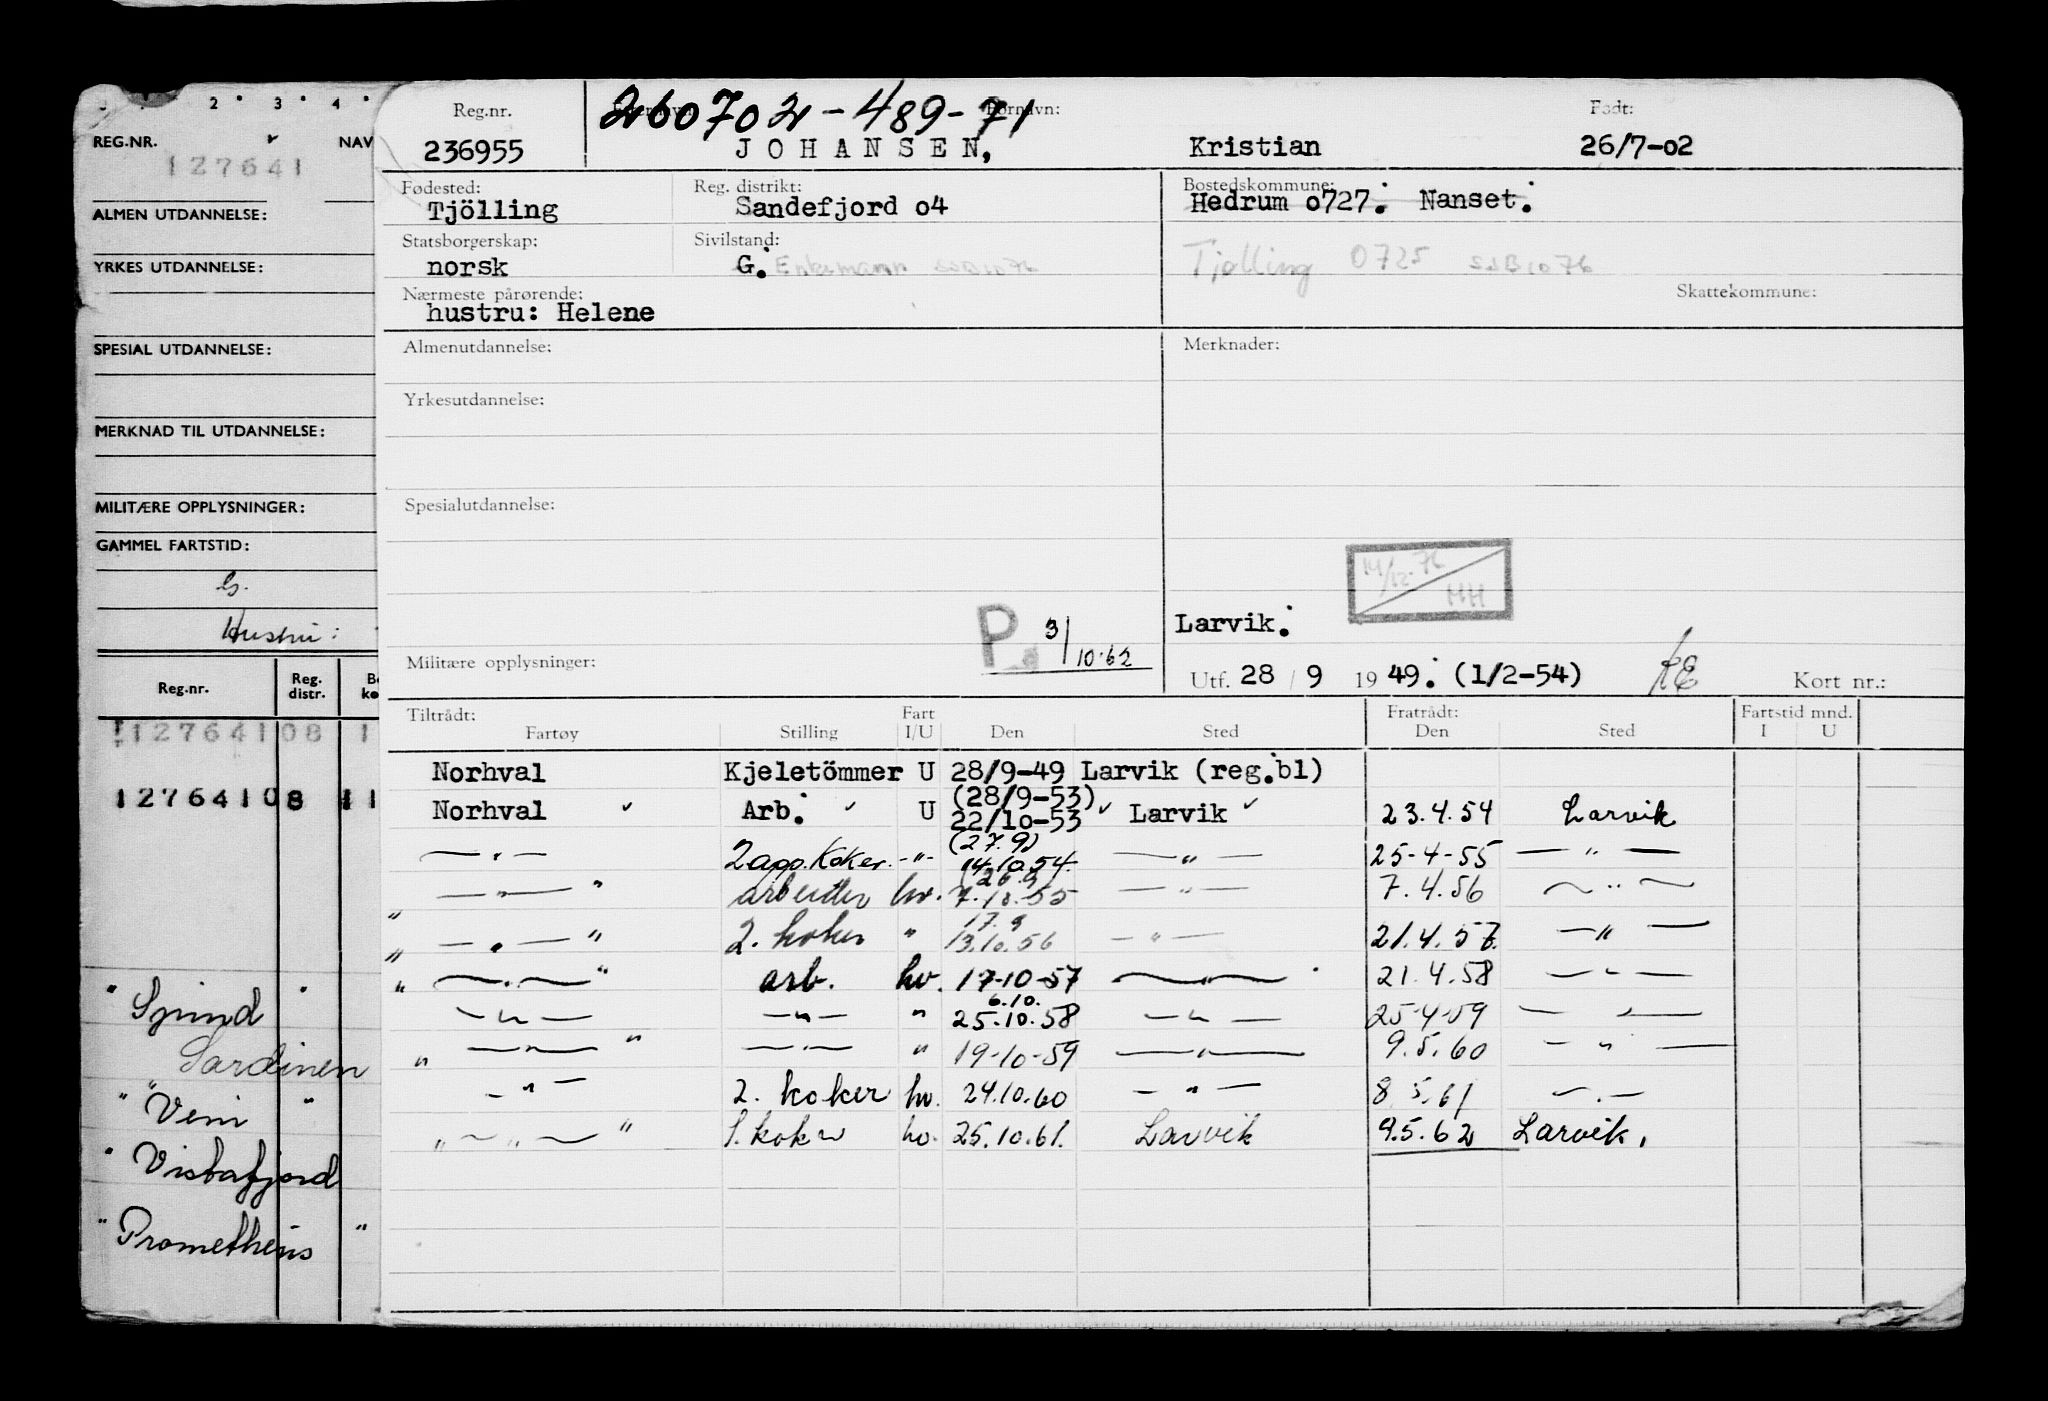 2 3 4
REG.NR. NAV
127641
ALMEN UTDANNELSE:
YRKES UTDANNELSE:
SPESIAL UTDANNELSE:
MERKNAD TIL UTDANNELSE:
MILITÆRE OPPLYSNINGER:
GAMMEL FARTSTID:
G.
Hustru:
Reg.nr. Reg. distr.
127641 08 1
127641 08 11
" Spind "
Sardinen
" Veni "
" Vistafjord
" Prometheus "
Reg.nr. 260702-489-71 Fornavn: Født:
236955 JOHANSEN, Kristian 26/7-02
Fødested: Reg. distrikt: Bostedskommune:
Tjölling Sandefjord o4 Hedrum o727: Nanset.
Statsborgerskap: Sivilstand:
norsk G. Enkemann SSB 10 76 Tjølling 0725 SSB 10 76
Nærmeste pårørende: Skattekommune:
hustru: Helene
Almenutdannelse: Merknader:
Yrkesutdannelse:
Spesialutdannelse:
14/12.76 HH
P 3/10.62 Larvik.
Militære opplysninger: Utf. 28 / 9 19 49: (1/2-54) KE Kort nr.:
Tiltrådt: Fart Fratrådt: Fartstid mnd.
Fartøy Stilling I/U Den Sted Den Sted I U
Norhval Kjeletömmer U 28/9-49 Larvik (reg.bl)
(28/9-53)
Norhval Arb. U 22/10-53 Larvik 23.4.54 Larvik
(27.9)
— " — 2 app. Koker. -"- 14.10.54 — " — 25-4-55 — " —
(26.9
" — " — " arbeider hv. 7.10.55 — " — 7.4.56 — " —
17.9
" — " — " 2. koker " 13.10.56 — " — 21.4.57. — " —
" — " — " arb. hv. 17-10-57 — " — 21.4.58 — " —
6.10.
— " — — " — " 25.10.58 — " — 25-4-59 — " —
" — " — " — " — " 19-10-59 — " — 9.5.60 — " —
— " — 2. koker hv. 24.10.60 — " — 8.5.61 — " —
" — " — " 1. koker hv. 25.10.61. Larvik 9.5.62 Larvik.